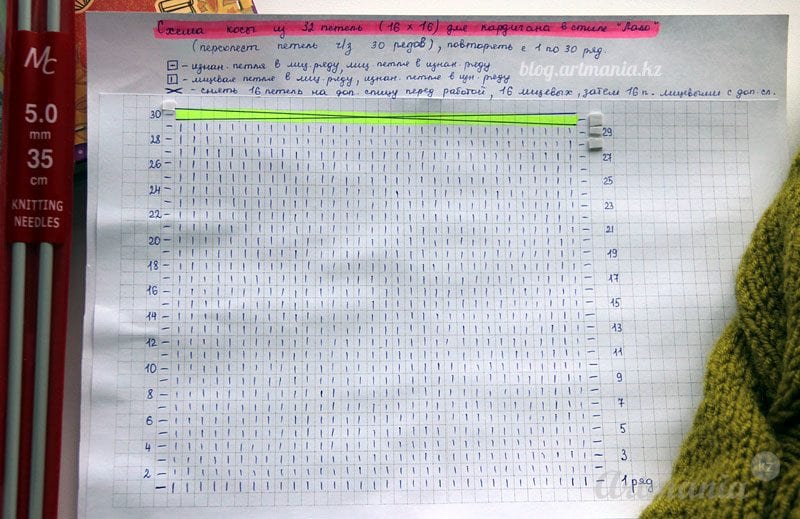 Схема косы из 32 петель (16 х 16) для кардигана в стиле "Лало"
(перехлест петель ч/з 30 рядов), повторять с 1 по 30 ряд.
- изнан. петля в лиц. ряду, лиц. петля в изнан. ряду
- лицевая петля в лиц. ряду, изнан. петля в изн. ряду
blog.artmania.kz
- снять 16 петель на доп. спицу перед работой, 16 лицевых, затем 16 п. лицевыми с доп. сп.
MC
5.0
mm
35
cm
KNITTING
NEEDLES
30
29
28
27
26
25
24
23
22
21
20
19
18
17
16
15
14
13
12
11
10
9
8
7
6
5
4
3
2
1 ряд
Artmania.kz